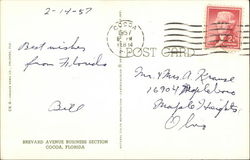 2-14-57
COCOA
1957
POST CARD
Best wishes
from Florida
Bill
Mr. & Mrs. A. Krause
16904
Maple Heights
Ohio
BREVARD AVENUE BUSINESS SECTION
COCOA, FLORIDA